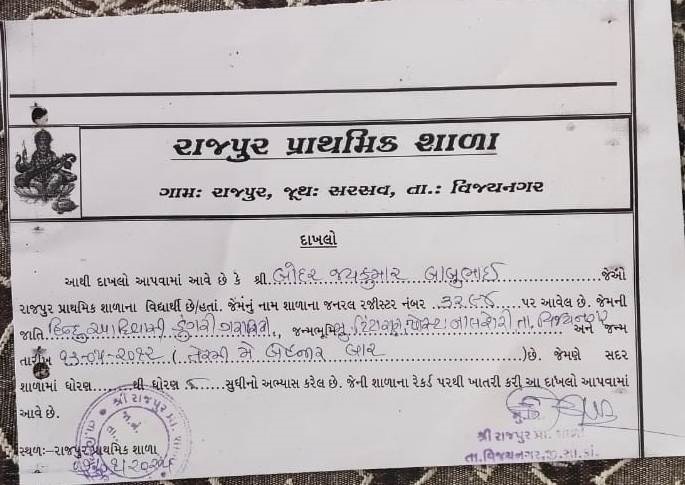 રાજપુર પ્રાથમિક શાળા
ગામઃ રાજપુર, જૂથઃ સરસવ, તા.: વિજયનગર
દાખલો
આથી દાખલો આપવામાં આવે છે કે શ્રી બોદર જયકુમાર બાબુભાઈ જેઓ
રાજપુર પ્રાથમિક શાળાના વિદ્યાર્થી છે/હતાં. જેમનું નામ શાળાના જનરલ રજીસ્ટર નંબર પર આવેલ છે. જેમની
જાતિ હિન્દુ આદિવાસી ડુંગરી ગરાસિયા, જન્મભૂમિ તા. વિજયનગર અને જન્મ
તારીખ ૧૩-૦૫-૨૦૧૨ ( તેરમી મે બે હજાર બાર )છે. જેમણે સદર
શાળામાં ધોરણ થી ધોરણ સુધીનો અભ્યાસ કરેલ છે. જેની શાળાના રેકર્ડ પરથી ખાતરી કરી આ દાખલો આપવામાં
આવે છે.
શ્રી રાજપુર પ્રા.
સ્થળઃ-રાજપુર પ્રાથમિક શાળા
શ્રી રાજપુર પ્રા. શાળા
તા.વિજયનગર,જી.સા.કાં.